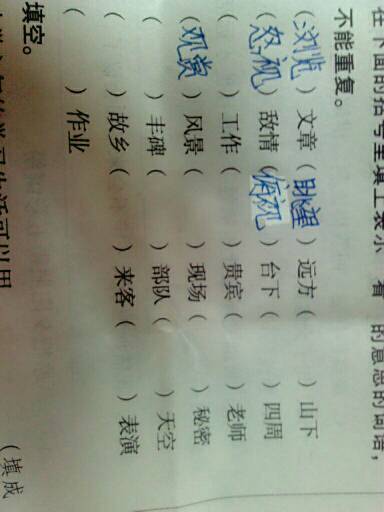 在下面的括号里填上表示“看”的意思的词语，
不能重复。
（浏览）文章（眺望）远方（　）山下
（忽视）敌情（俯视）台下（　）四周
（　）工作（　）贵宾（　）老师
（观赏）风景（　）现场（　）秘密
（　）丰碑（　）部队（　）天空
（　）故乡（　）来客（　）表演
（　）作业
填空。
生活可以用（填成